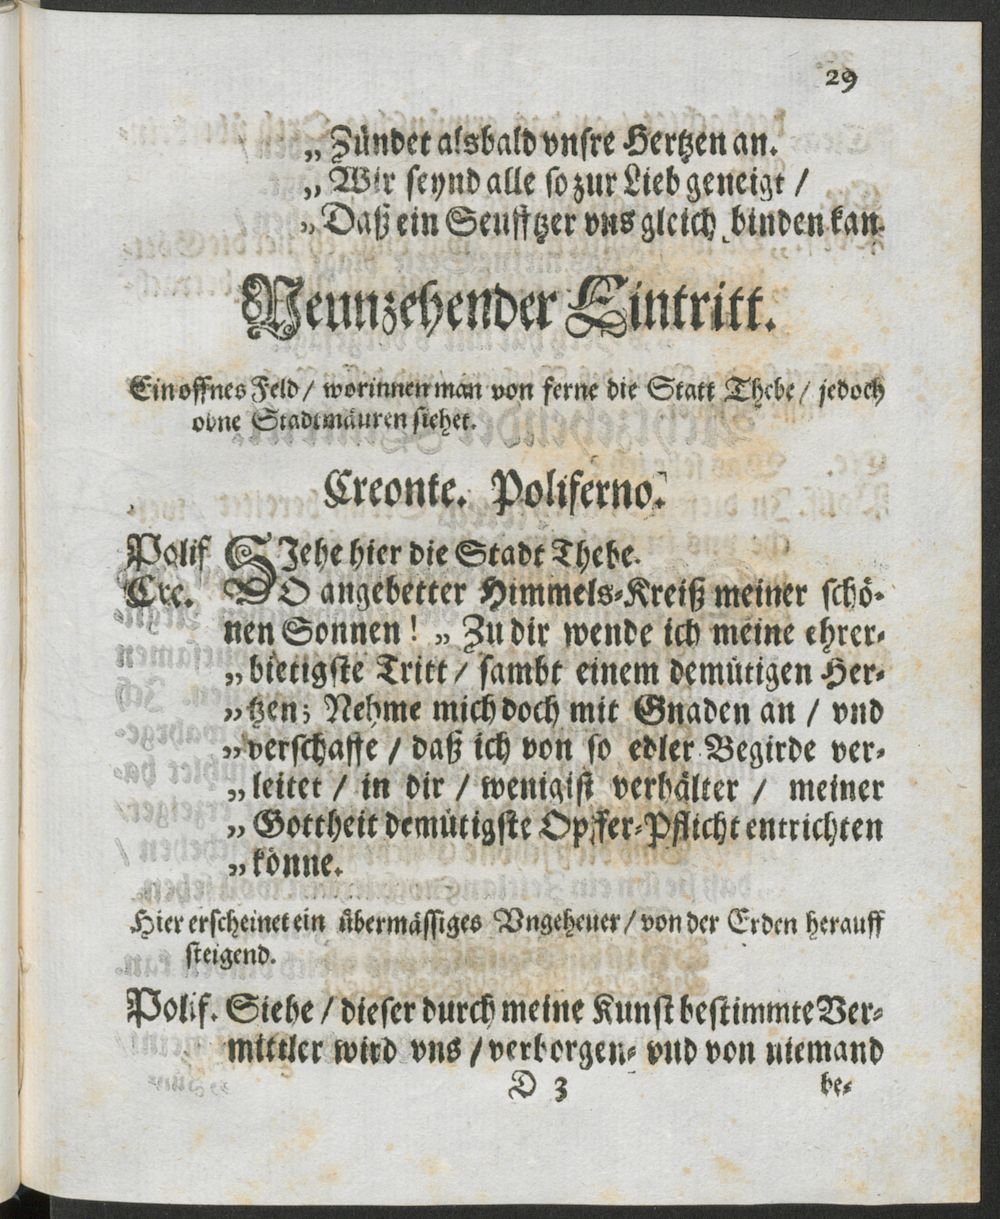 29
„ Zündet alsbald vnsre Hertzen an.
„ Wir seynd alle so zur Lieb geneigt /
„ Daß ein Seufftzer vns gleich binden kan.
Neunzehender Eintritt.
Ein offnes Feld / worinnen man von ferne die Statt Thebe / jedoch
ohne Stadtmäuren siehet.
Creonte. Poliferno.
Polif. SJehe hier die Stadt Thebe.
Cre. O angebetter Himmels-Kreiß meiner schö-
nen Sonnen ! „ Zu dir wende ich meine ehrer-
„ bietigste Tritt / sambt einem demütigen Her-
„ tzen; Nehme mich doch mit Gnaden an / vnd
„ verschaffe / daß ich von so edler Begirde ver-
„ leitet / in dir / wenigist verhälter / meiner
„ Gottheit demütigste Opffer-Pflicht entrichten
„ könne.
Hier erscheinet ein übermässiges Vngeheuer / von der Erden herauff
steigend.
Polif. Siehe / dieser durch meine Kunst bestimmte Ver-
mittler wird vns / verborgen- vnd von niemand
D 3
be-